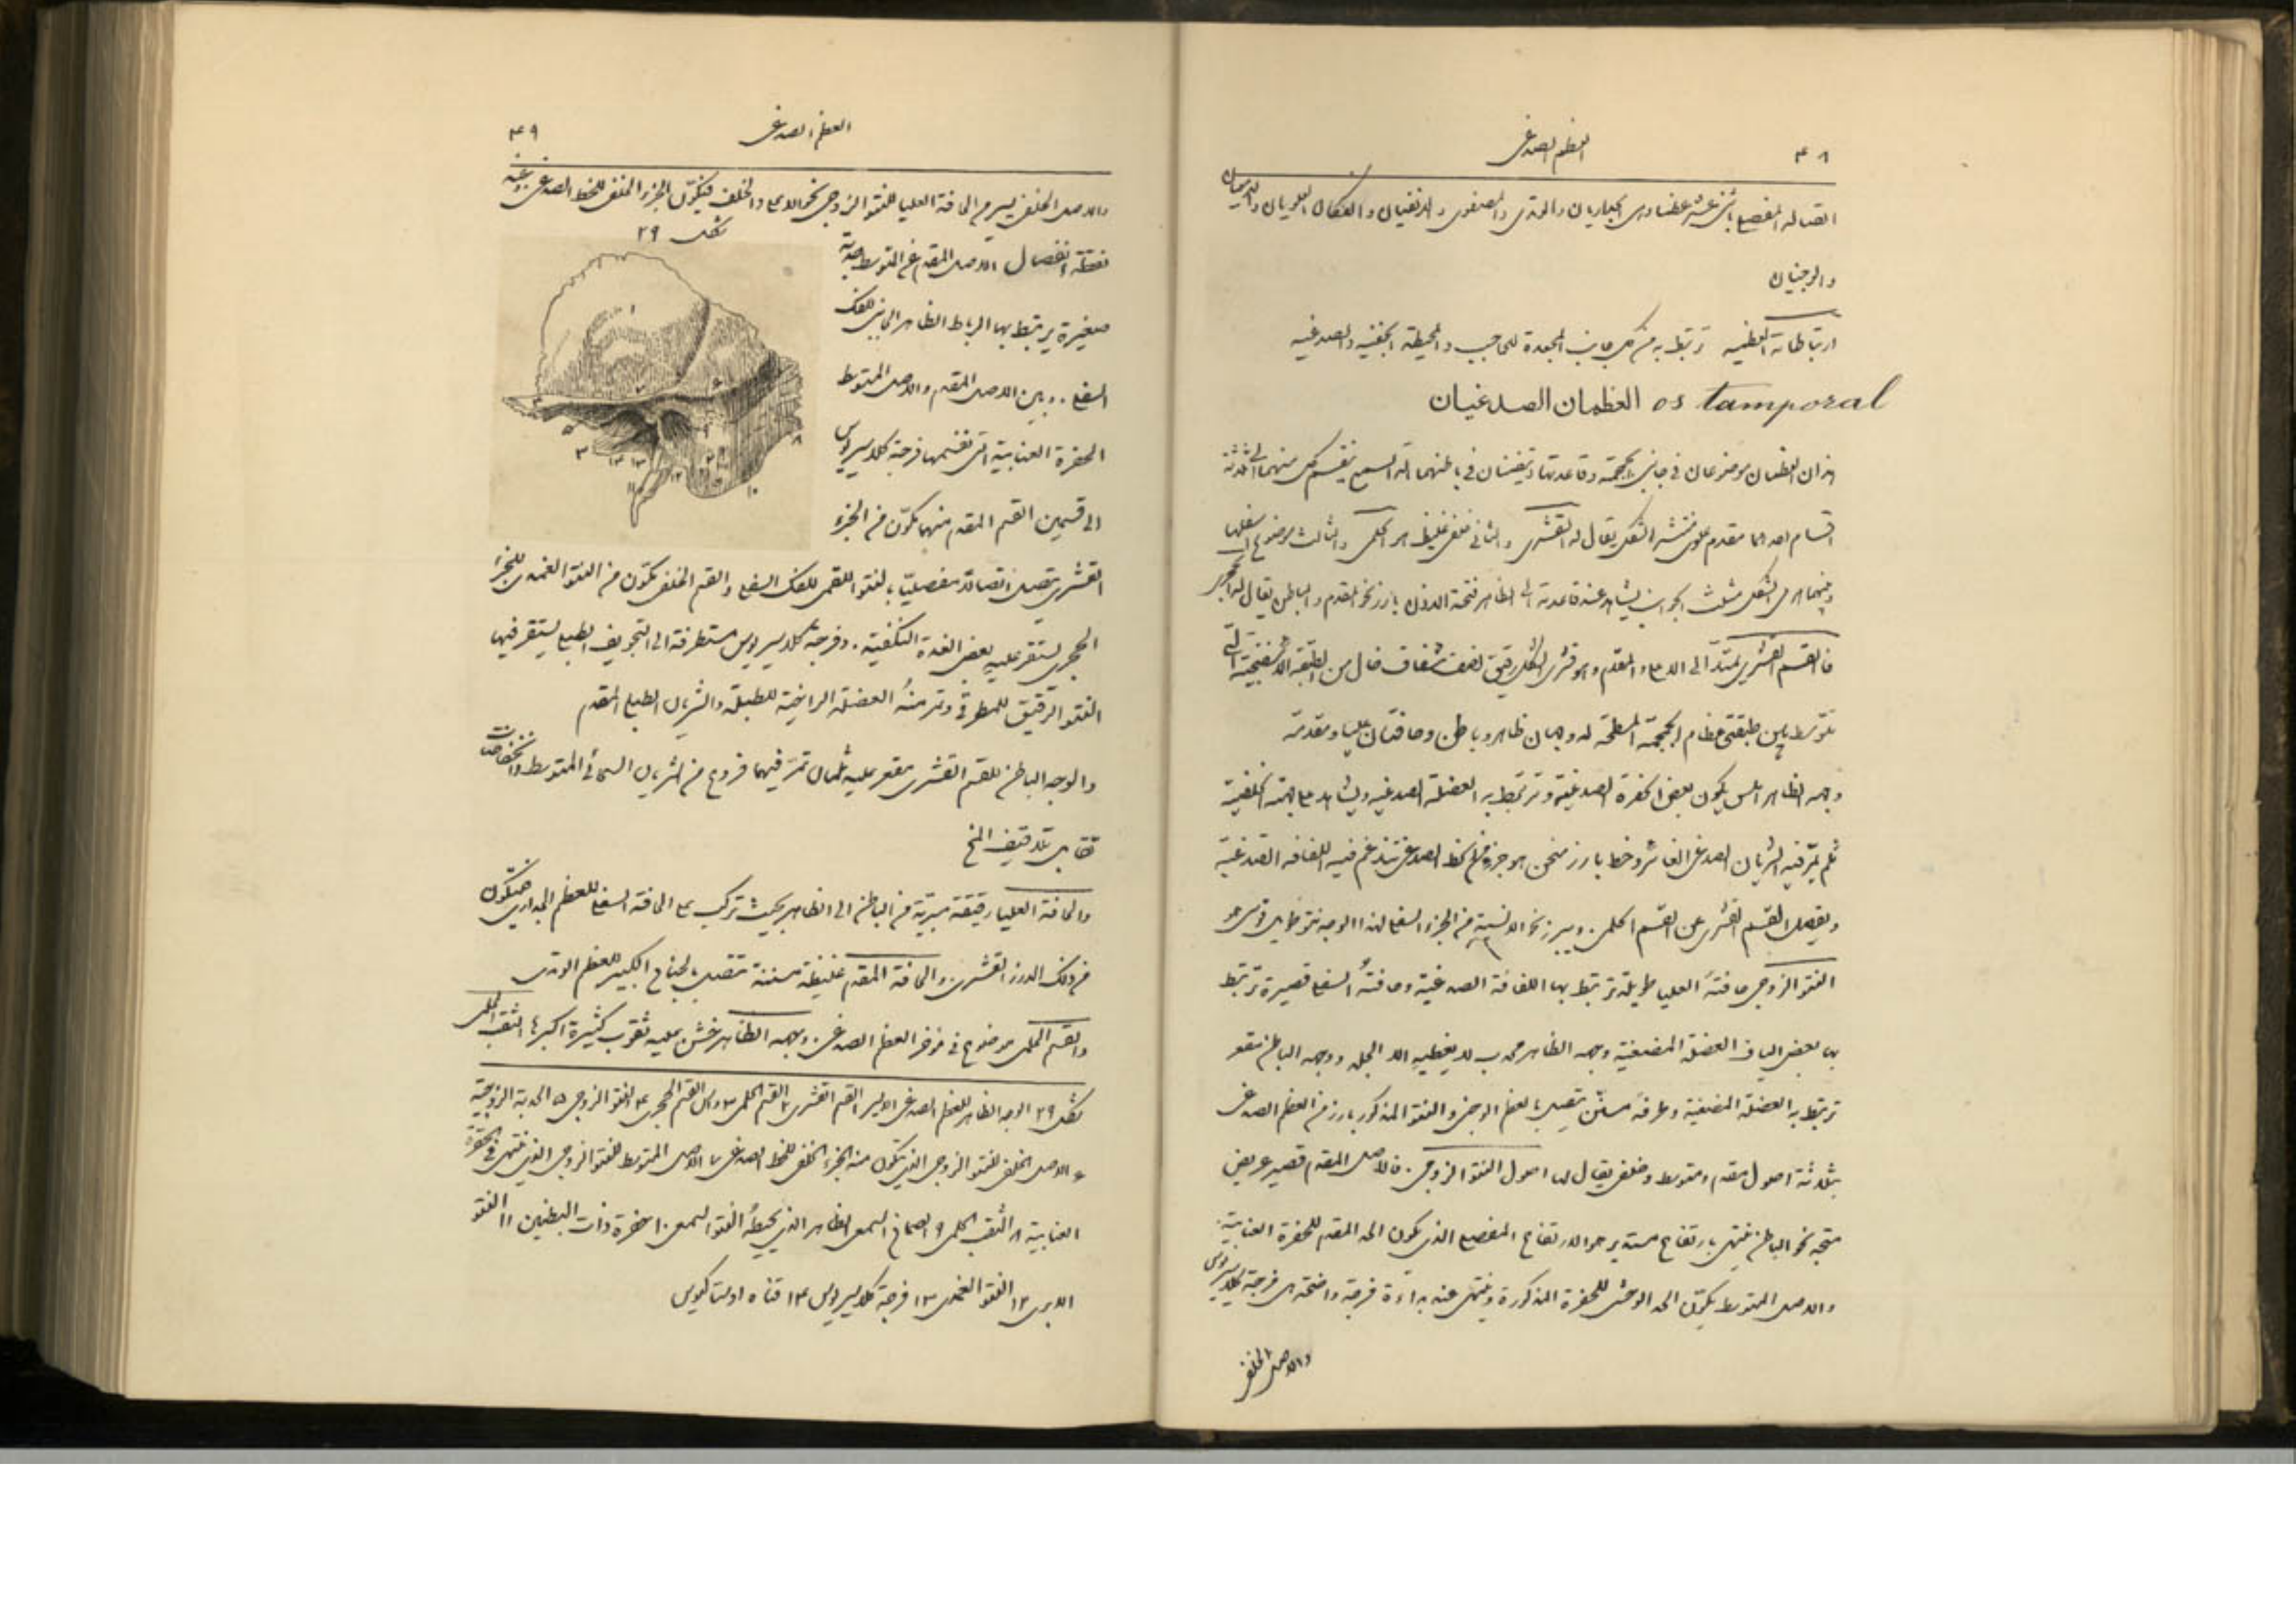 ٤٨
العظم الصدغى
اتصاله المفصلى باثنى عشر عظما وهى الجداريان والوتدى والمصفوى والانفيان والفكان العلويان والدمعيان
والوجنيان
ارتباطاته العضلية ترتبط به من كل جانب المجعدة للحاجب والمحيطة الجفنية والصدغية
العظمان الصدغيان os tamporal
هذان العظمان موضوعان فى جانبى الجمجمة وقاعدتها ويتضمنان فى باطنهما آلة السمع ينقسم كل منهما الى ثلاثة
اقسام احدهما مقدم علوى منتشر الشكل يقال له القشرى والثانى خلفى غليظ هو الحلمى والثالث موضوع اسفلها
وبينهما هرمى الشكل مثلث الجوانب يشاهد عند قاعدته الى الظاهر فتحة الاذن بارز نحو المقدم والباطن يقال له الحجرى
فالقسم القشرى يمتد الى الاعلى والمقدم وهو قشرى الشكل رقيق نصف شفاف خال من الطبقة الاسفنجية التى
تتوسط بين طبقتى عظام الجمجمة المسطحة له وجهان ظاهر وباطن وحافتان عليا ومقدمة
وجهه الظاهر املس يكون بعض الحفرة الصدغية وترتبط به العضلة الصدغية ويشاهد على جهته الخلفية
ثلم يمر فيه الشريان الصدغى الغائر وخط بارز منحن هو جزء من الخط الصدغى تندغم فيه اللفافة الصدغية
ويفصل القسم القشرى عن القسم الحلمى. ويبرز نحو الانسية من الجزء السفلى لهذا الوجه نتو طويل قوسى هو
النتو الزوجى حافته العليا طويلة ترتبط بها اللفافة الصدغية وحافته السفلى قصيرة ترتبط
بها بعض الياف العضلة المضغية وجهه الظاهر محدب لا يغطيه الا الجلد ووجهه الباطن مقعر
ترتبط به العضلة المضغية وطرفه مسنن يتصل بالعظم الوجنى والنتو المذكور بارز من العظم الصدغى
بثلاثة اصول مقدم ومتوسط وخلفى يقال لها اصول النتو الزوجى. فالاصل المقدم قصير عريض
متجه نحو الباطن ينتهى بارتفاع مستدير هو الارتفاع المفصلى الذى يكون الحد المقدم للحفرة العنابية
والاصل المتوسط يكون الحد الوحشى للحفرة المذكورة وينتهى عند بداءة فرجة واضحة هى فرجة كلاسيريوس
والاصل الخلفى
٤٩
العظم الصدغى
والاصل الخلفى يسير من الحافة العليا للنتو الزوجى نحو الاعلى والخلف فيكون الجزء الخلفى للخط الصدغى وعند
شكل ٢٩
نقطة انفصال الاصل المقدم عن المتوسط حدبة
صغيرة يرتبط بها الرباط الظاهر الجانبى للفك
السفلى. وبين الاصل المقدم والاصل المتوسط
الحفرة العنابية التى تقسمها فرجة كلاسيريوس
الى قسمين القسم المقدم منهما تكون من الجزء
القشرى يتصل اتصالا مفصليا بالنتو اللقمى للفك السفلى والقسم الخلفى تكون من النتو الغمدى للجزء
الحجرى يستقر عليه بعض الغدة النكفية. وفرجة كلاسيريوس مستطرقة الى التجويف الطبلى يستقر فيها
النتو الرقيق للمطرقة وتمر منه العضلة الراخية للطبلة والشريان الطبلى المقدم
والوجه الباطن للقسم القشرى مقعر عليه ثلمان تمر فيهما فروع من الشريان السحائى المتوسط وانخفاضات
تقابل تلافيف المخ
والحافة العليا رقيقة مبرية من الباطن الى الظاهر بحيث تركب على الحافة السفلى للعظم الجدارى فيتكون
من ذلك الدرز القشرى. والحافة المقدمة غليظة مسننة تتصل بالجناح الكبير للعظم الوتدى
والقسم الحلمى موضوع فى مؤخر العظم الصدغى. وجهه الظاهر خشن عليه ثقوب كثيرة اكبرها الثقب الحلمى
شكل ٢٩ الوجه الظاهر للعظم الصدغى الايسر ١ القسم القشرى ٢ القسم الحلمى ٣ راس القسم الحجرى ٤ النتو الزوجى ٥ الحدبة الزوجية
٦ الاصل الخلفى للنتو الزوجى الذى يتكون منه الجزء الخلفى للخط الصدغى ٧ الاصل المتوسط للنتو الزوجى الذى ينتهى فى الحفرة
العنابية ٨ الثقب الحلمى ٩ الصماخ السمعى الظاهر الذى يحيط به النتو السمعى ١٠ حفرة ذات البطنين ١١ النتو
الابرى ١٢ النتو الغمدى ١٣ فرجة كلاسيريوس ١٤ قناة اوستاكيوس